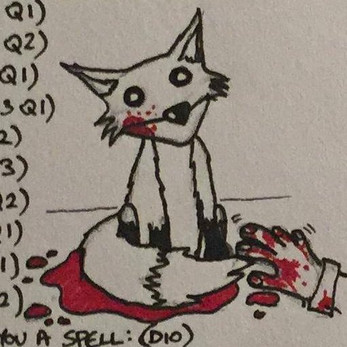 Q1)
Q2)
Q1)
3 Q1)
2)
3)
2)
1)
1)
2)
YOU A SPELL: (D10)